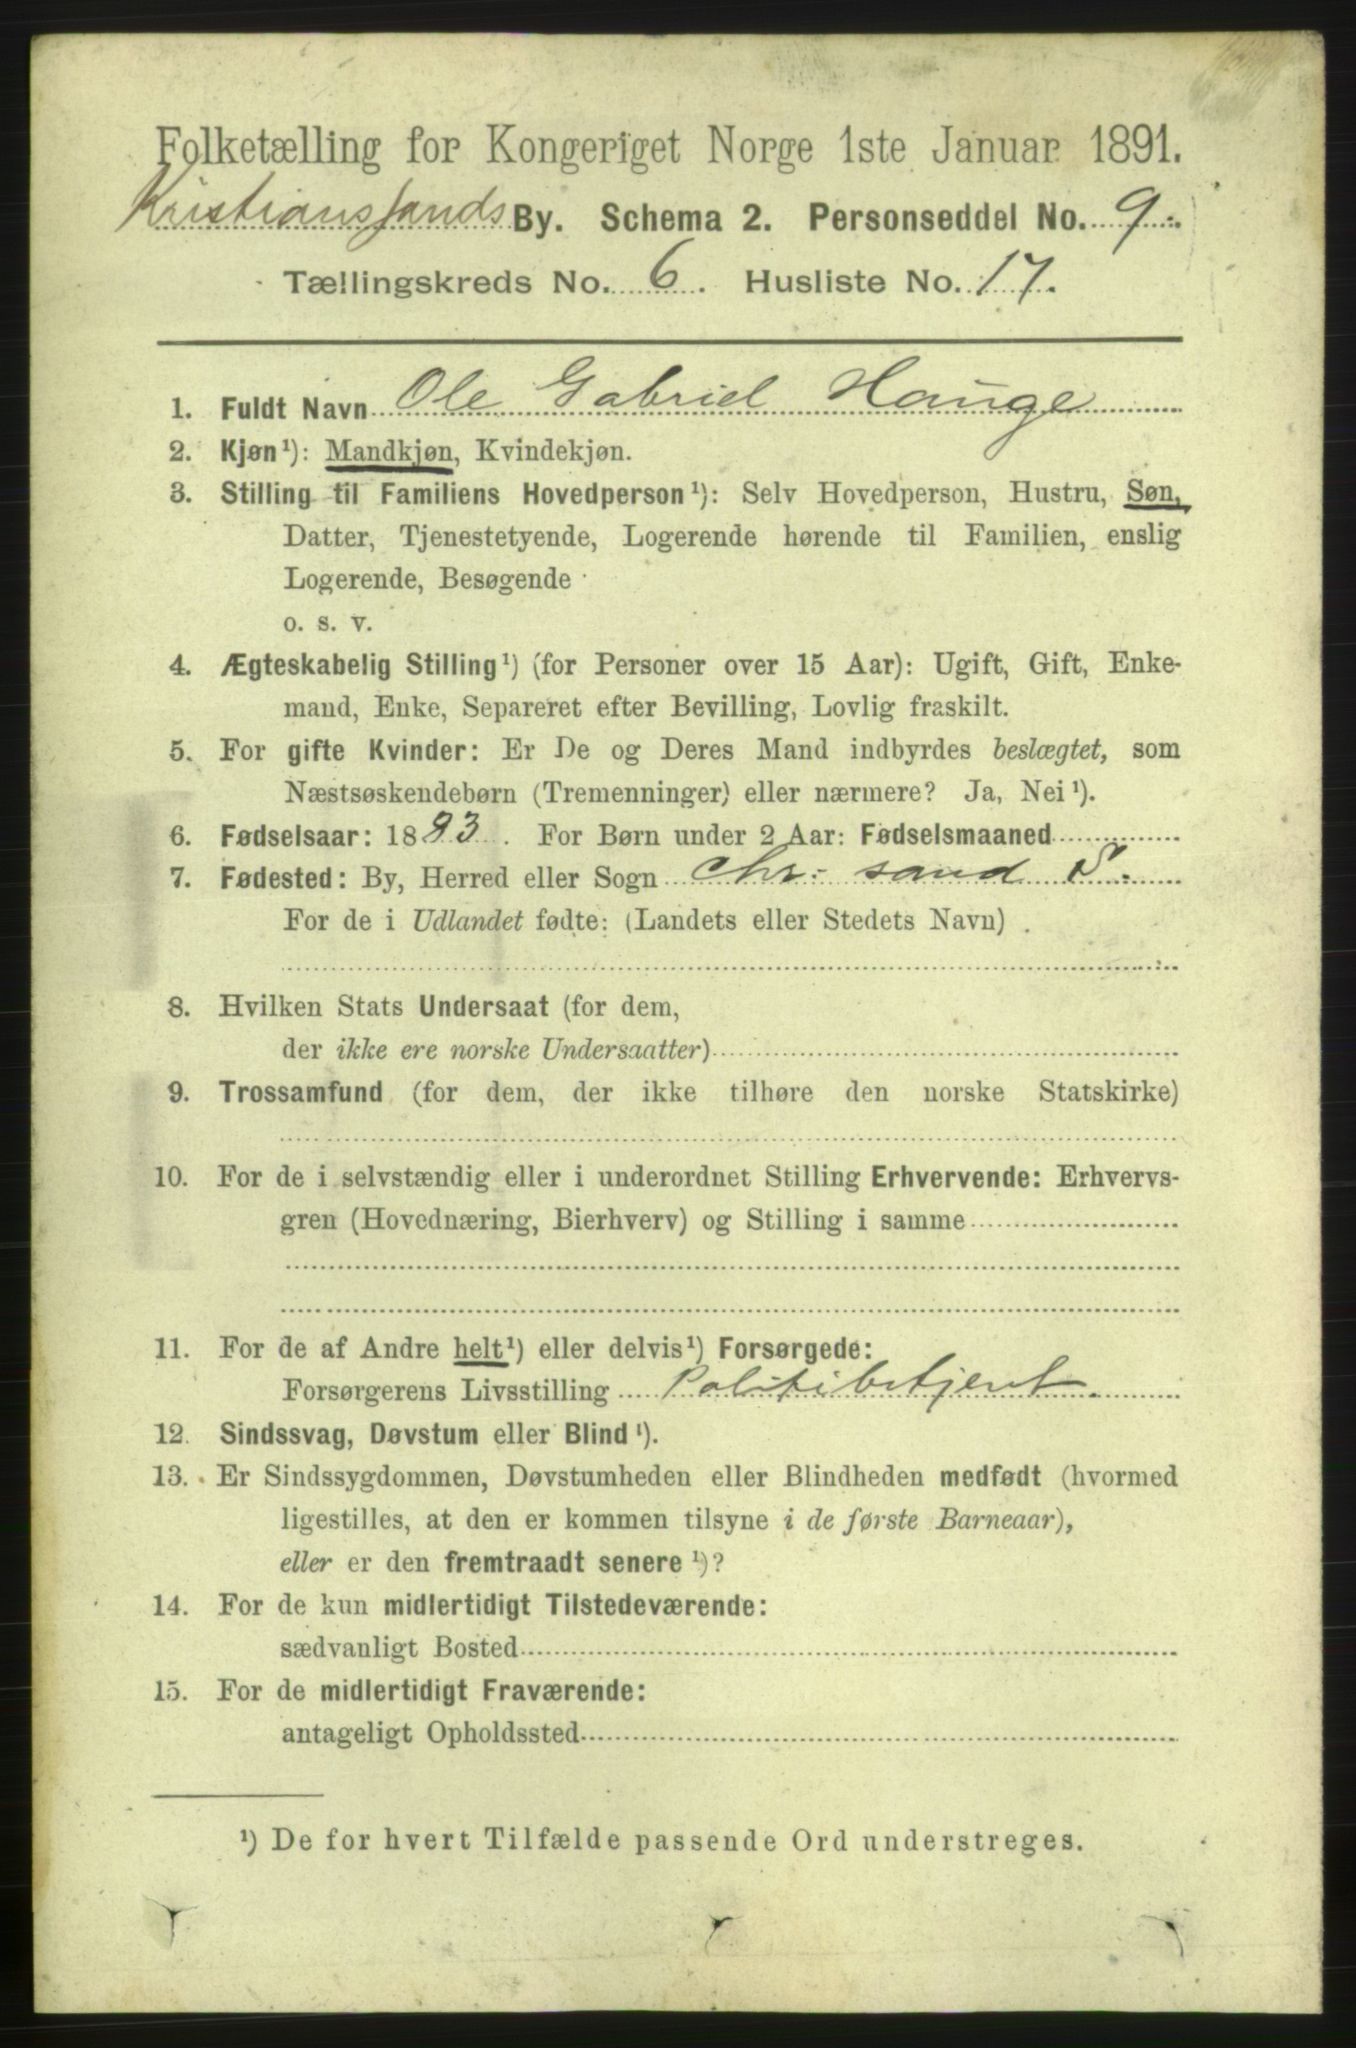 Folketælling for Kongeriget Norge 1ste Januar 1891.
Kristianssands By. Schema 2. Personseddel No. 9.
Tællingskreds No. 6. Husliste No. 17.
1. Fuldt Navn Ole Gabriel Hauge
2. Kjøn¹): Mandkjøn, Kvindekjøn.
3. Stilling til Familiens Hovedperson¹): Selv Hovedperson, Hustru, Søn,
Datter, Tjenestetyende, Logerende hørende til Familien, enslig
Logerende, Besøgende
o. s. v.
4. Ægteskabelig Stilling¹) (for Personer over 15 Aar): Ugift, Gift, Enke-
mand, Enke, Separeret efter Bevilling, Lovlig fraskilt.
5. For gifte Kvinder: Er De og Deres Mand indbyrdes beslægtet, som
Næstsøskendebørn (Tremenninger) eller nærmere? Ja, Nei¹).
6. Fødselsaar: 1883. For Børn under 2 Aar: Fødselsmaaned
7. Fødested: By, Herred eller Sogn Chr.sand S.
For de i Udlandet fødte: (Landets eller Stedets Navn)
8. Hvilken Stats Undersaat (for dem,
der ikke ere norske Undersaatter)
9. Trossamfund (for dem, der ikke tilhøre den norske Statskirke)
10. For de i selvstændig eller i underordnet Stilling Erhvervende: Erhvervs-
gren (Hovednæring, Bierhverv) og Stilling i samme
11. For de af Andre helt¹) eller delvis¹) Forsørgede:
Forsørgerens Livsstilling Politibetjent.
12. Sindssvag, Døvstum eller Blind¹).
13. Er Sindssygdommen, Døvstumheden eller Blindheden medfødt (hvormed
ligestilles, at den er kommen tilsyne i de første Barneaar),
eller er den fremtraadt senere¹)?
14. For de kun midlertidigt Tilstedeværende:
sædvanligt Bosted
15. For de midlertidigt Fraværende:
antageligt Opholdssted
¹) De for hvert Tilfælde passende Ord understreges.